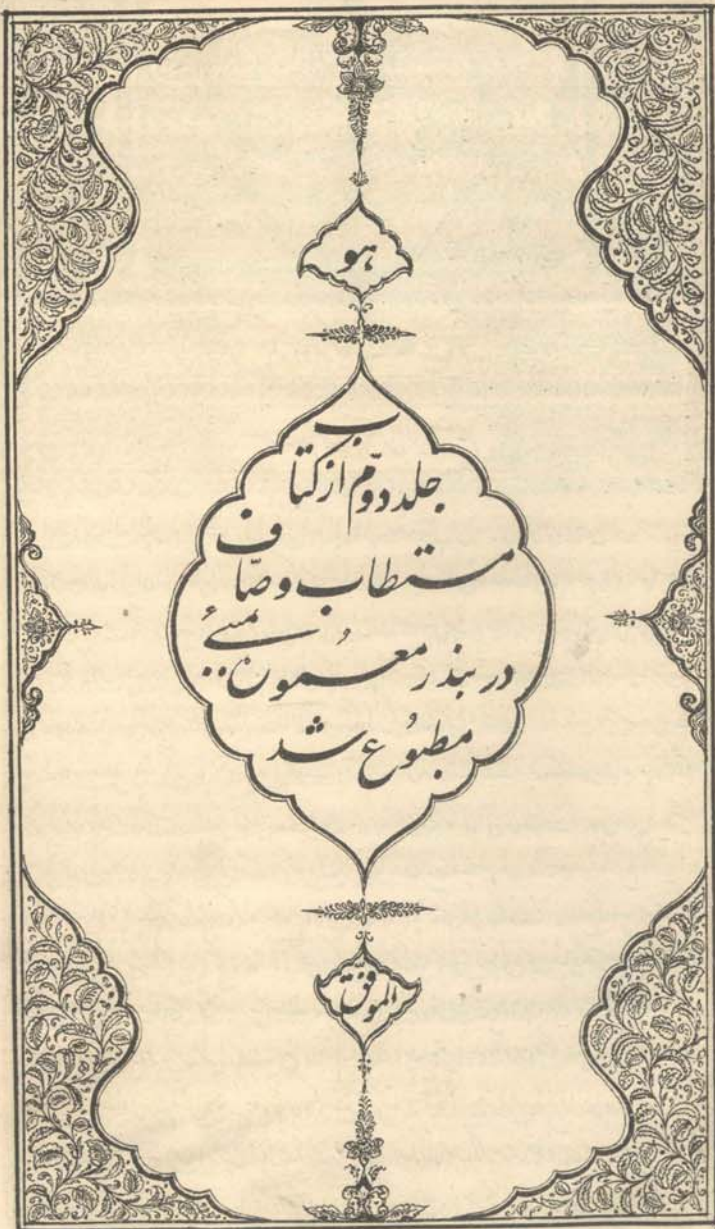 هو
جلد دوّم از کتاب
مستطاب وصّاف
در بندر معموره بمبئی
مطبوُع شد
الموفق